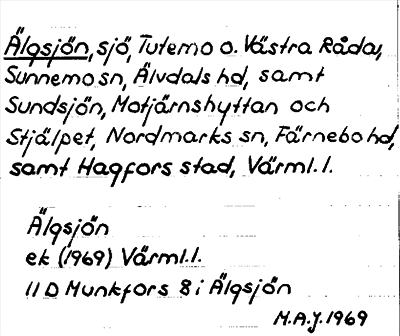 Älgsjön, sjö, Tutemo o. Västra Råda,
Sunnemo sn, Älvdals hd, samt
Sundsjön, Motjärnshyttan och
Stjälpet, Nordmarks sn, Färnebo hd,
samt Hagfors stad, Värml. l.
Älgsjön
ek (1969) Värml. l.
11 D Munkfors 8 i Älgsjön
M.A.J. 1969